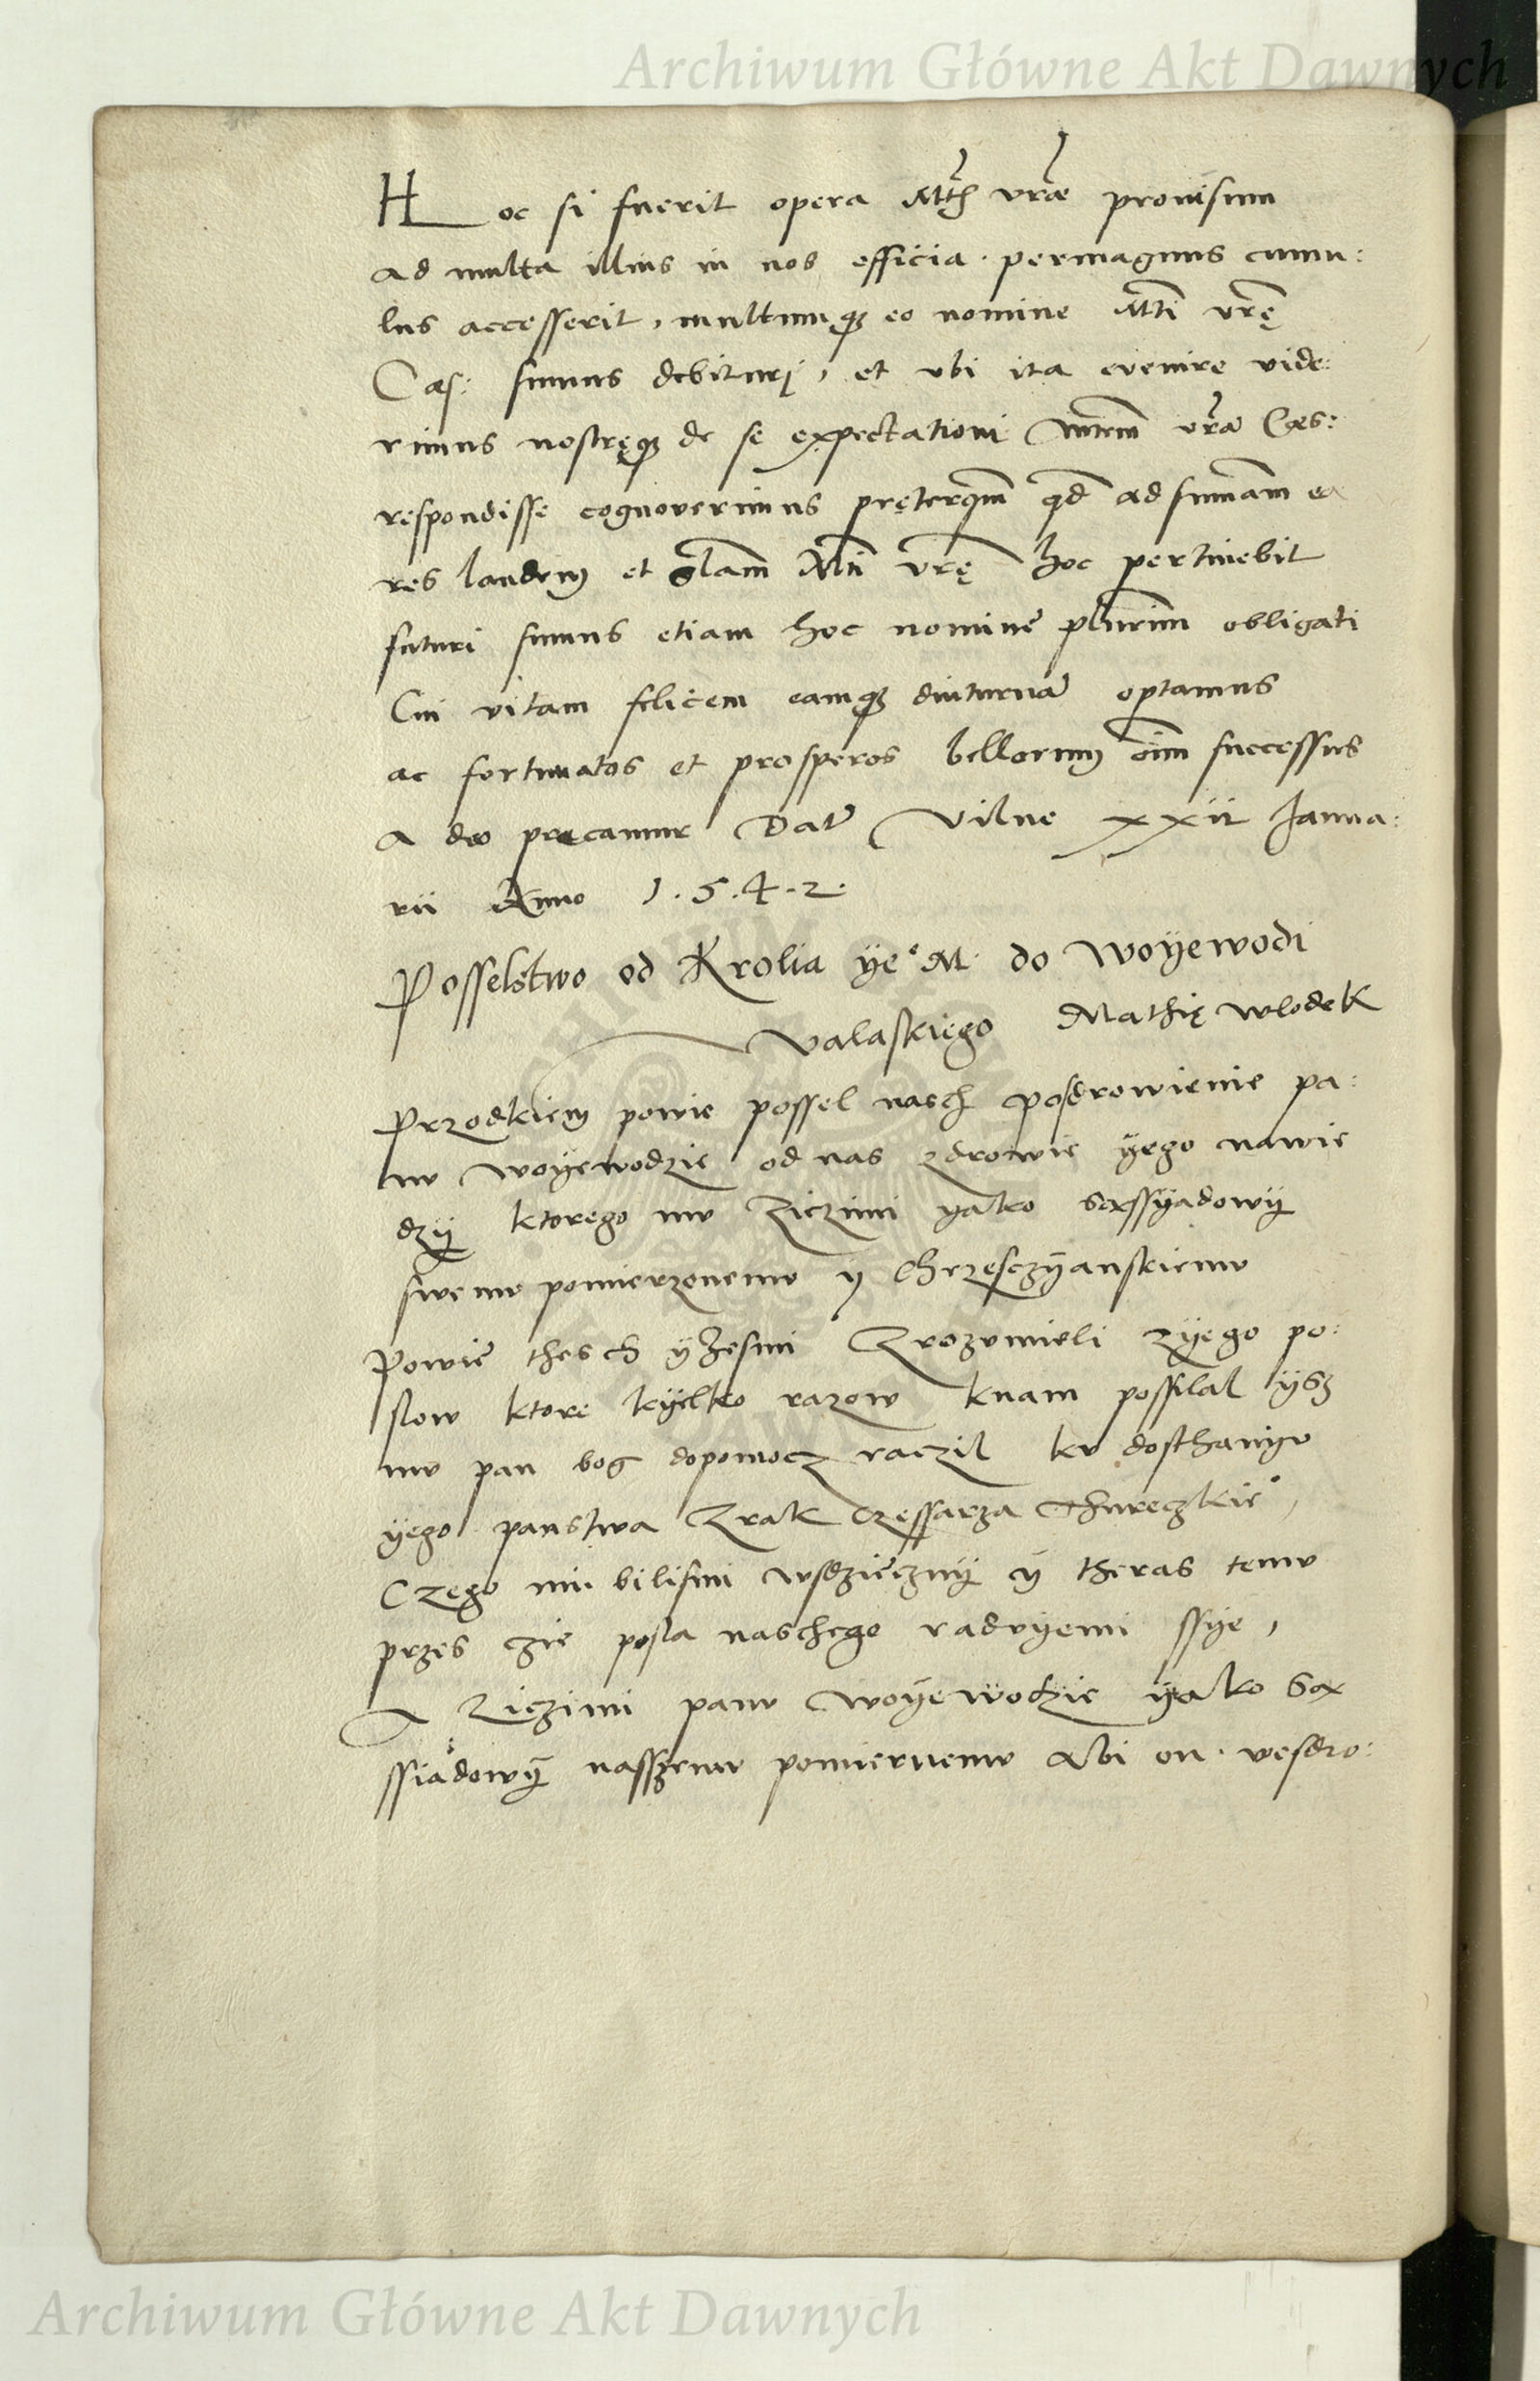 Archiwum Główne Akt Dawnych
Hoc si fuerit opera Mtis vrae provisum
ad multa illius in nos officia. permagnus cumu:
lus accesserit, multumq; eo nomine Mti vrę
Caes: sumus debituri, et ubi ita evenire vide:
rimus nostręq; de se expectationi Mtem vram Caes:
respondisse cognoverimus pręterqm qd ad summam ea
res laudem et glam Mti vrę hoc pertinebit
futuri sumus etiam hoc nomine plurimum obligati
Cui vitam felicem eamq; diuturnā optamus
ac fortunatos et prosperos bellorum oim successus
a deo precamur Dat Vilne xxii Janua:
rii Anno 1.5.4.2.
Posselstwo od Krolia ye° M. do Woÿewodi
Valaskiego Mathię Wlodek
Przodkiem powie possel nasch posdrowienie pa:
nv Woÿewodzie od nas zdrowie ÿego nawie
dzÿ ktorego mv ziczimi ÿako sassÿadowÿ
swemv pomierzonemv y Chrzesczÿanskiemv
Powie thesch ÿzesmi zrozvmieli zÿego po:
slow ktore kÿelko razow knam possilal ÿsz
mv pan bog dopomocz raczil kv dosthanigv
ÿego panstwa zrak Czessarza Thureczkie°,
Czego mi bilismi wsdzięcznÿ ÿ theras temv
przes czie posla naschego radvÿemi ssÿe,
A ziczimi panv Woÿewodzie ÿako sa
ssiadowÿ nasszemv pomiernemv Abi on vesdro:
Archiwum Główne Akt Dawnych